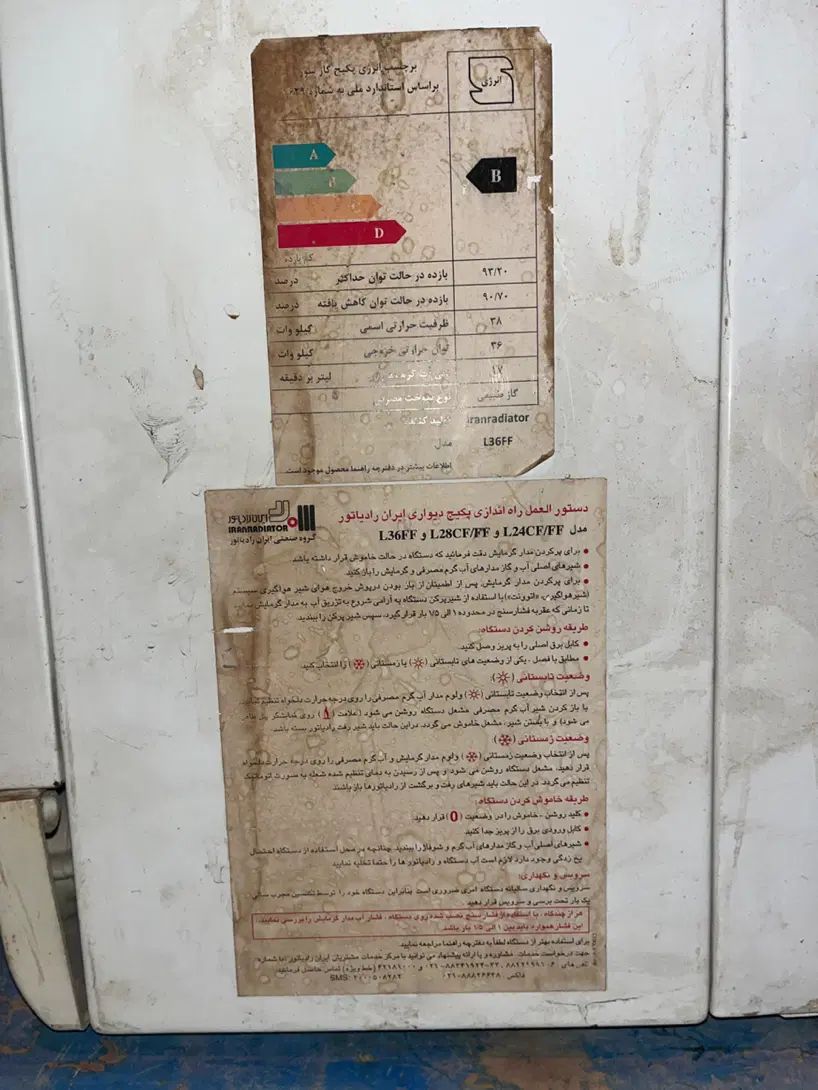 برچسب انرژی پکیج گاز سوز
براساس استاندارد ملی به شماره
انرژی
A
B
D
B
بازده در حالت توان حداکثر درصد ۹۳/۲۰
بازده در حالت توان کاهش یافته درصد ۹۰/۷۰
ظرفیت حرارتی اسمی کیلو وات ۳۸
توان حرارتی خروجی کیلو وات ۳۶
لیتر بر دقیقه
نوع سوخت مصرفی گاز طبیعی
تولید کننده iranradiator
مدل L36FF
اطلاعات بیشتر در دفترچه راهنما محصول موجود است.
ایران رادیاتور
IRANRADIATOR
گروه صنعتی ایران رادیاتور
دستور العمل راه اندازی پکیج دیواری ایران رادیاتور
مدل L24CF/FF و L28CF/FF و L36FF
• برای پرکردن مدار گرمایش دقت فرمائید که دستگاه در حالت خاموش قرار داشته باشد
• شیرهای اصلی آب و گاز مدارهای آب گرم مصرفی و گرمایش را باز کنید.
• برای پرکردن مدار گرمایش، پس از اطمینان از باز بودن درپوش خروج هوای شیر هواگیری سیستم
(شیرهواگیری «اتوونت») با استفاده از شیرپرکن دستگاه به آرامی شروع به تزریق آب به مدار گرمایش نمایید
تا زمانی که عقربه فشارسنج در محدوده ۱ الی ۱/۵ بار قرار گیرد، سپس شیر پرکن را ببندید.
طریقه روشن کردن دستگاه:
• کابل برق اصلی را به پریز وصل کنید.
• مطابق با فصل ، یکی از وضعیت های تابستانی (☼) یا زمستانی (❄) را انتخاب کنید.
وضعیت تابستانی (☼):
پس از انتخاب وضعیت تابستانی (☼) ولوم مدار آب گرم مصرفی را روی درجه حرارت دلخواه تنظیم نمایید.
با باز کردن شیر آب گرم مصرفی مشعل دستگاه روشن می شود (علامت ( ) روی نمایشگر
می شود) و با بستن شیر، مشعل خاموش می گردد. در این حالت باید شیر رفت رادیاتور بسته باشد.
وضعیت زمستانی (❄):
پس از انتخاب وضعیت زمستانی (❄) ولوم مدار گرمایش و آب گرم مصرفی را روی درجه حرارت دلخواه
قرار دهید. مشعل دستگاه روشن می شود و پس از رسیدن به دمای تنظیم شده شعله به صورت اتوماتیک
تنظیم می گردد. در این حالت باید شیرهای رفت و برگشت از رادیاتورها باز باشند.
طریقه خاموش کردن دستگاه:
• کلید روشن - خاموش را در وضعیت (0) قرار دهید.
• کابل ورودی برق را از پریز جدا کنید.
• شیرهای اصلی آب و گاز مدارهای آب گرم و شوفاژ را ببندید. چنانچه در محل استفاده از دستگاه احتمال
یخ زدگی وجود دارد لازم است آب دستگاه و رادیاتور ها را حتما تخلیه نمایید
سرویس و نگهداری:
سرویس و نگهداری سالیانه دستگاه امری ضروری است بنابراین دستگاه خود را توسط تکنسین مجرب سالی
یک بار تحت برسی و سرویس قرار دهید.
هر از چندگاه ، با استفاده از فشار سنج نصب شده روی دستگاه ، فشار آب مدار گرمایش را بررسی نمایید.
این فشار همواره باید بین ۱ الی ۱/۵ بار باشد.
برای استفاده بهتر از دستگاه لطفا به دفترچه راهنما مراجعه نمایید.
جهت درخواست خدمات ، مشاوره و یا ارائه پیشنهاد می توانید با مرکز خدمات مشتریان ایران رادیاتور
تلفن های و (خط ویژه) تماس حاصل فرمائید.
فاکس : ۰۲۱-۸۸۸۲۶۶۳۸ SMS: